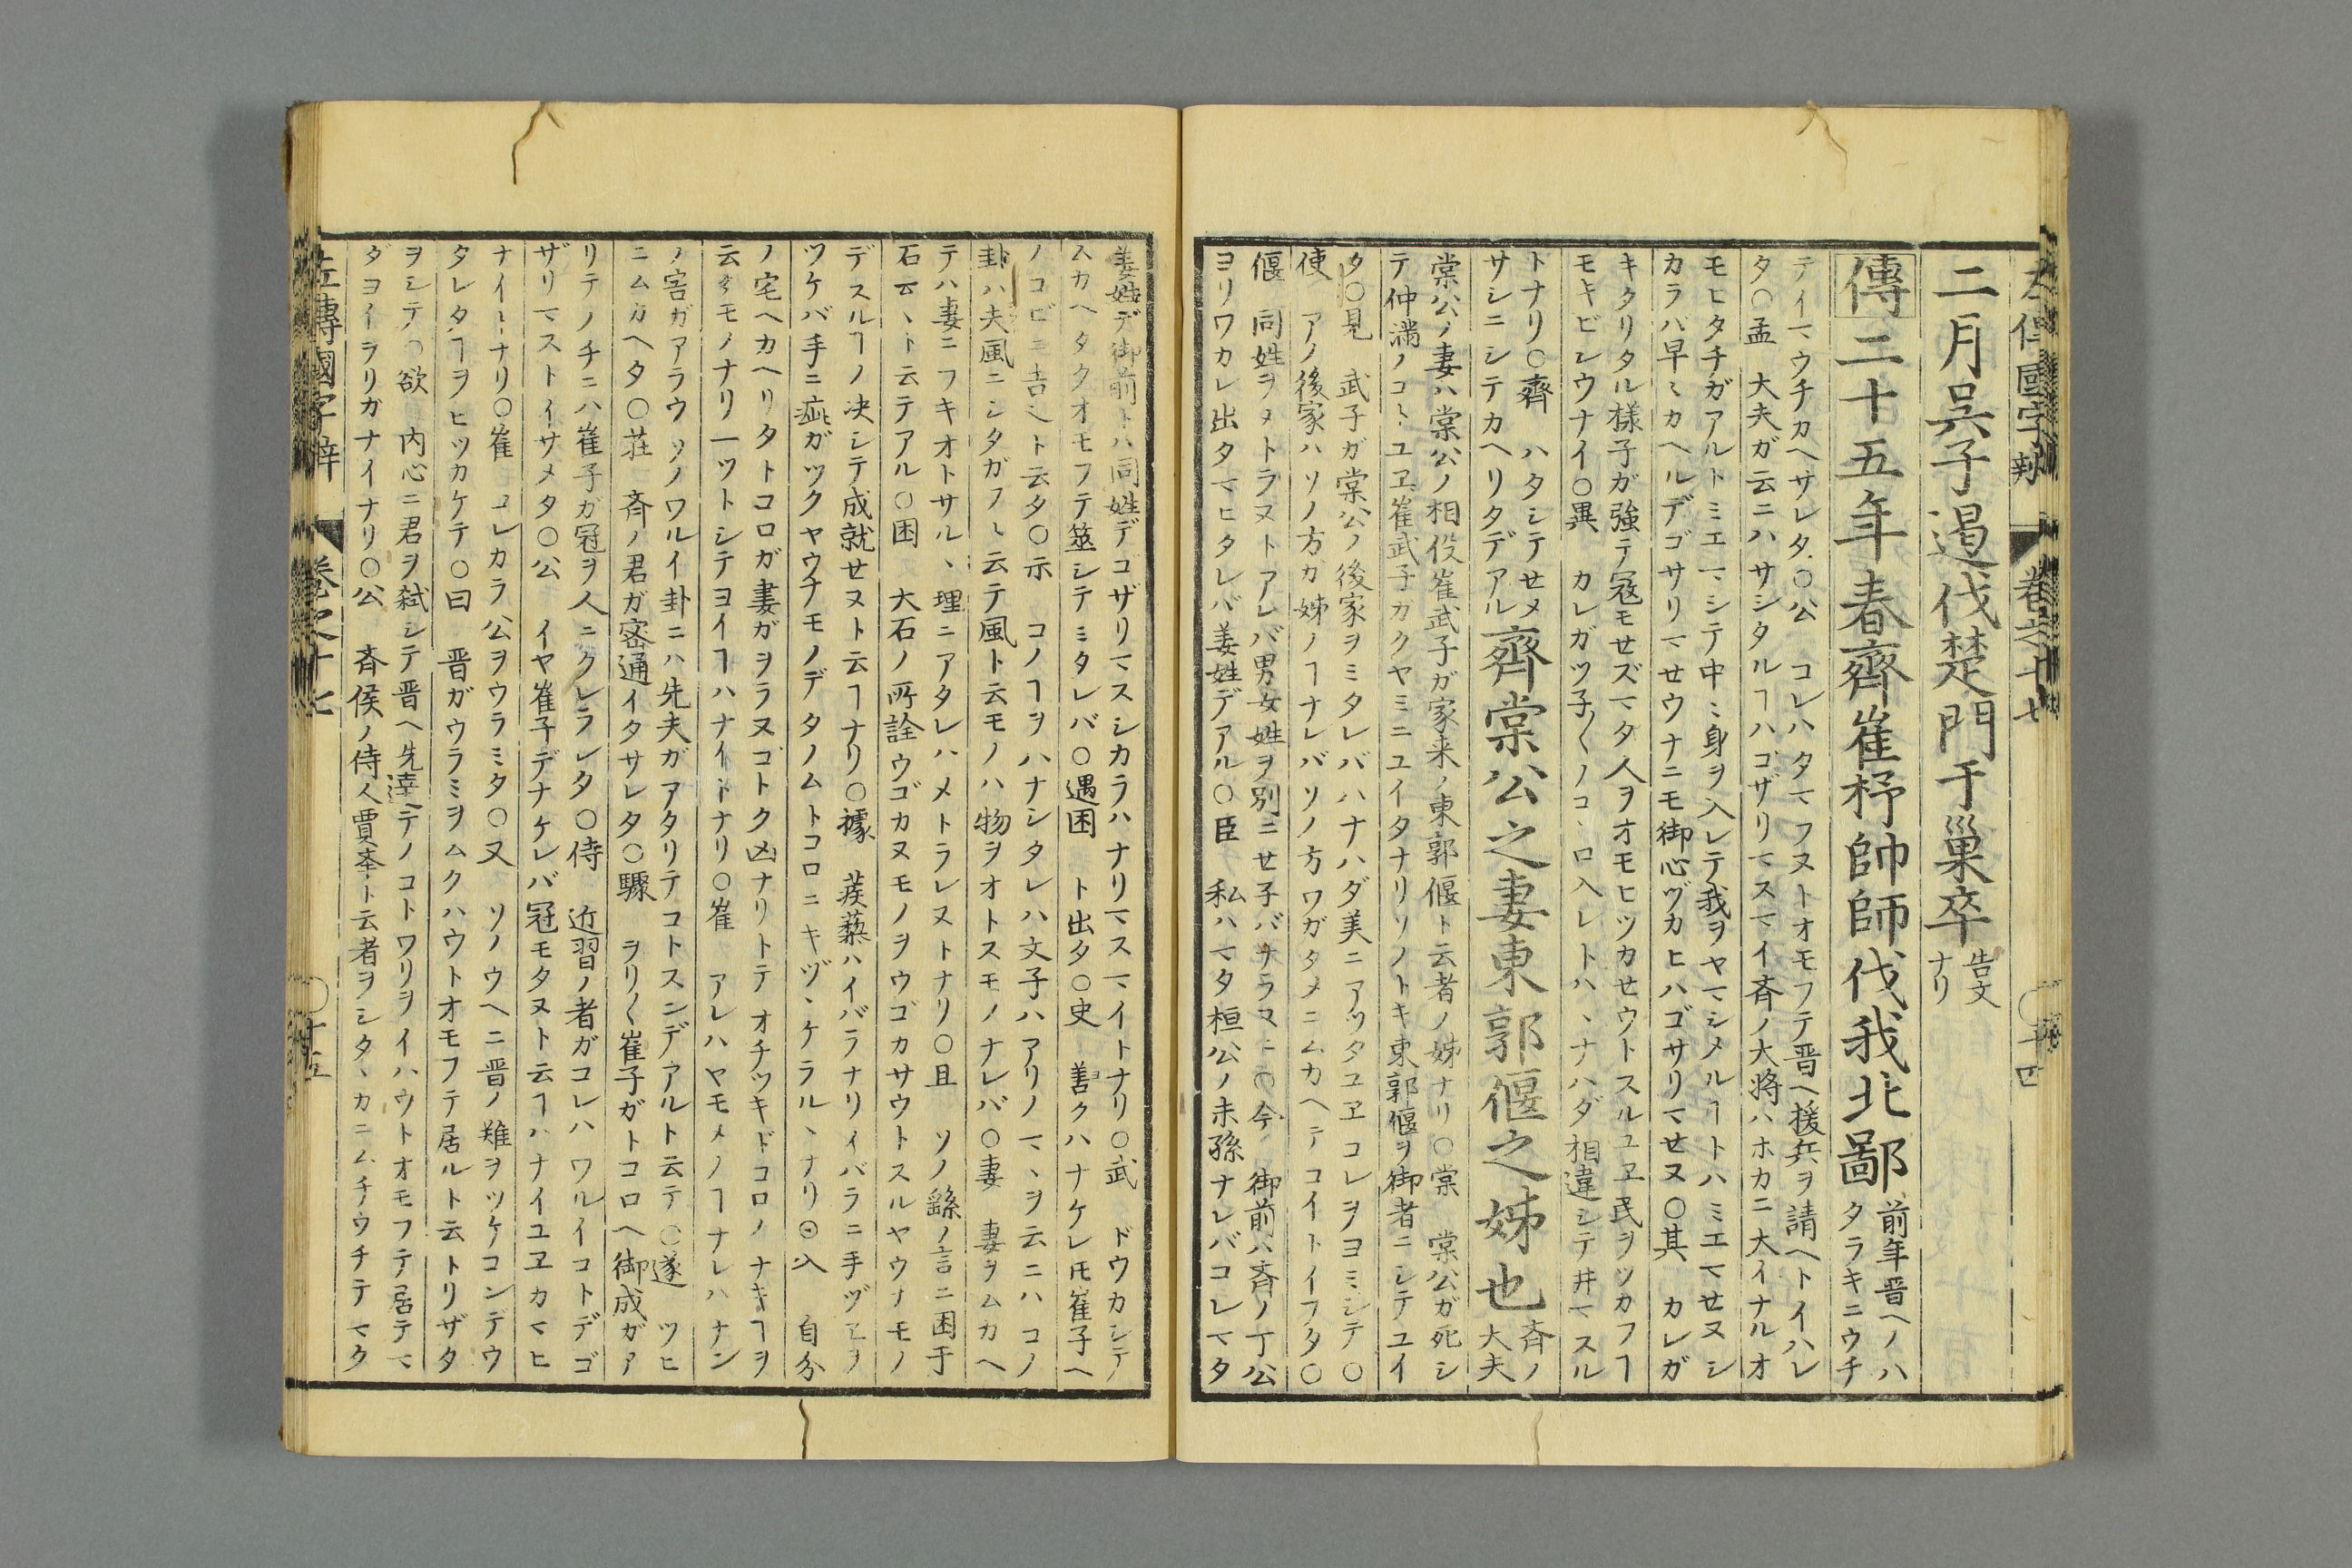 左傳國字辨 卷之十七 ○十四
二月吳子遏伐楚門于巢卒
告文
ナリ
傳二十五年春齊崔杼帥師伐我北鄙
前年晋ヘノハ
タラキニウチ
テイマウチカヘサレタ○公 コレハタマフヌトオモフテ晋ヘ援兵ヲ請ヘトイハレ
タ○孟 大夫ガ云ニハサシタルヿハゴザリマスマイ斉ノ大将ハホカニ大イナルオ
モヒタチガアルトミエマシテ中ミ身ヲ入レテ我ヲヤマシメルヿトハミエマせヌシ
カラバ早ミカヘルデゴサリマせウナニモ御心ヅカヒハゴサリマせヌ○其 カレガ
キタリタル様子ガ強テ冦モせズマタ人ヲオモヒツカせウトスルユヱ民ヲツカフヿ
モキビシウナイ○異 カレガツ子〱ノコヽロ入レトハヽナハダ相違シテ井マスル
トナリ○齊 ハタシテせメ
サシニシテカヘリタデアル
齊棠公之妻東郭偃之姊也
斉ノ
大夫
棠公ノ妻ハ棠公ノ相役崔武子ガ家来ノ東郭偃ト云者ノ姊ナリ○棠 棠公ガ死シ
テ仲満ノコヽユヱ崔武子ガクヤミニユイタナリソノトキ東郭偃ヲ御者ニシテユイ
タ○見 武子ガ棠公ノ後家ヲミタレバハナハダ美ニアツタユヱコレヲヨミシテ○
使 アノ後家ハソノ方ガ姊ノヿナレバソノ方ワガタメニムカヘテコイトイフタ○
偃 同姓ヲメトラヌトアレバ男女姓ヲ別ニせ子バナラヌニ○今 御前ハ斉ノ丁公
ヨリワカレ出タマヒタレバ姜姓デアル○臣 私ハマタ桓公ノ末孫ナレバコレマタ
姜姓デ御前トハ同姓デゴザリマスシカラハナリマスマイトナリ○武 ドウカシテ
ムカヘタクオモフテ筮シテミタレバ○遇困 ト出タ○史 善クハナケレ𪜈崔子ヘ
ノコビニ吉シト云タ○示 コノヿヲハナシタレハ文子ハアリノマヽヲ云ニハコノ
卦ハ夫風ニシタガフト云テ風ト云モノハ物ヲオトスモノナレバ○妻 妻ヲムカヘ
テハ妻ニフキオトサルヽ理ニアタレハメトラレヌトナリ○且 ソノ繇ノ言ニ困于
石云ヽト云テアル○困 大石ノ所詮ウゴカヌモノヲウゴカサウトスルヤウナモノ
デスルヿノ决シテ成就せヌト云ヿナリ○據 蒺蔾ハイバラナリイバラニ手ヅヱヲ
ツケバ手ニ疵ガツクヤウナモノデタノムトコロニキヅヽケラルヽナリ○入 自分
ノ宅ヘカヘリタトコロガ妻ガヲラヌゴトク凶ナリトテオチツキドコロノナキヿヲ
云タモノナリ一ツトシテヨイヿハナイトナリ○崔 アレハヤモメノヿナレハナン
ノ害ガアラウソノワルイ卦ニハ先夫ガアタリテコトスンデアルト云テ○遂 ツヒ
ニムカヘタ○莊 斉ノ君ガ密通イタサレタ○驟 ヲリ〱崔子ガトコロヘ御成ガア
リテノチニハ崔子ガ冠ヲ人ニクレラレタ○侍 近習ノ者ガコレハワルイコトデゴ
ザリマストイサメタ○公 イヤ崔子デナケレバ冠モタヌト云ヿハナイユヱカマヒ
ナイトナリ○崔 コレカラ公ヲウラミタ○又 ソノウヘニ晋ノ難ヲツケコンデウ
タレタヿヲヒツカケテ○曰 晋ガウラミヲムクハウトオモフテ居ルト云トリザタ
ヲシテ○欲 内心ニ君ヲ弑シテ晋ヘ先達テノコトワリヲイハウトオモフテ居テマ
ダヨイヲリガナイナリ○公 斉侯ノ侍人賈挙ト云者ヲシタヽカニムチウチテマタ
左傳國字辨 卷之十七 ○十五